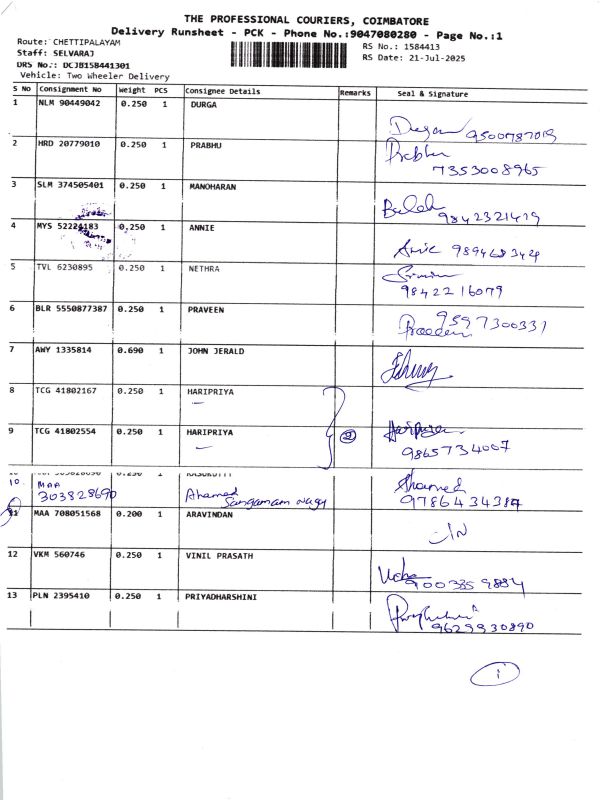 THE PROFESSIONAL COURIERS, COIMBATORE
Delivery Runsheet - PCK - Phone No.:9047080280 - Page No.:1
Route: CHETTIPALAYAM
Staff: SELVARAJ
DRS No.: DCJB158441301
Vehicle: Two Wheeler Delivery
RS No.: 1584413
RS Date: 21-Jul-2025
S No Consignment No Weight PCS Consignee Details Remarks Seal & Signature
1 NLM 90449042 0.250 1 DURGA
9500787019
2 HRD 20779010 0.250 1 PRABHU Prabhu
7353008965
3 SLM 374505401 0.250 1 MANOHARAN
9842321419
4 MYS 52224183 0.250 1 ANNIE
5 TVL 6230895 0.250 1 NETHRA
9842216079
6 BLR 5550877387 0.250 1 PRAVEEN 9597300331
7 AWY 1335814 0.690 1 JOHN JERALD
8 TCG 41802167 0.250 1 HARIPRIYA
9 TCG 41802554 0.250 1 HARIPRIYA 2
9865734007
10. MAA
303828690 Ahamed Ahamed
Sangamam 
11 MAA 708051568 0.200 1 ARAVINDAN
12 VKM 560746 0.250 1 VINIL PRASATH
13 PLN 2395410 0.250 1 PRIYADHARSHINI
9629930890
1